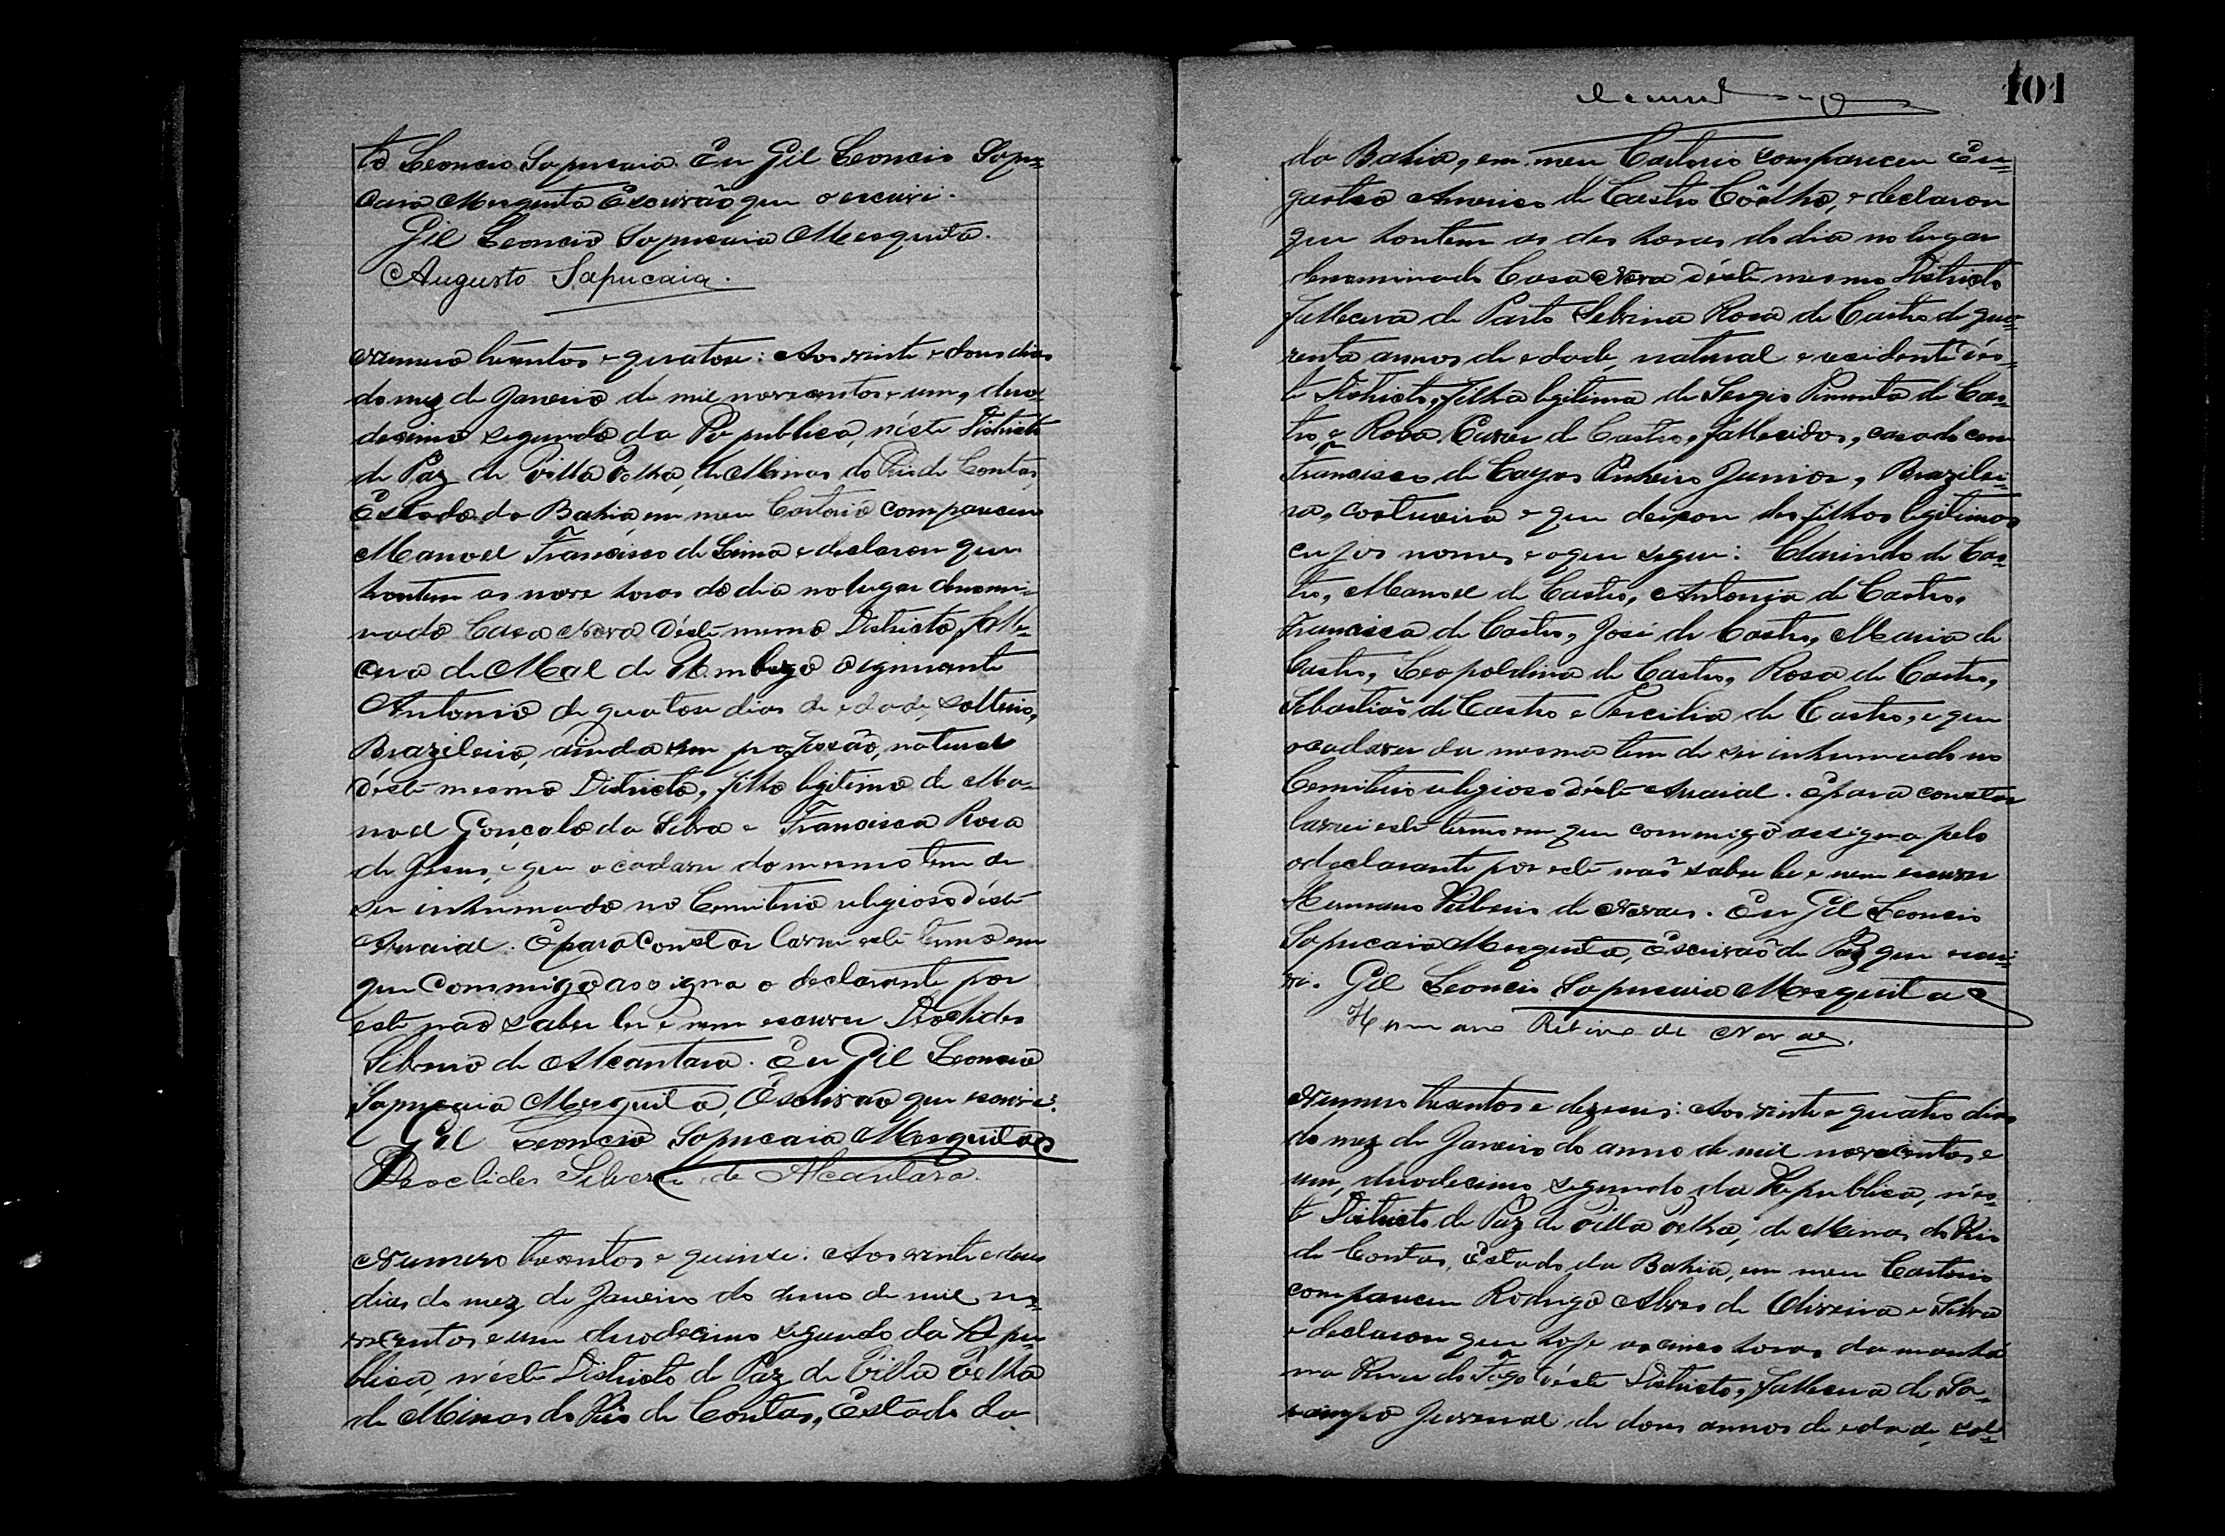 to Leoncio Sapucaia. Eu Gil Leoncio Sapu=
caia Mesquita Escrivão que o escrivi.
Gil Leoncio Sapucaia Mesquita.
Augusto Sapucaia.
Numero trezentos e quatorse: Aos vinte e dous dias
do mez de Janeiro de mil novecentos e um, duo=
decimo segundo da Republica, néste Districto
de Paz de Villa Velha, de Minas do Rio de Contas,
Estado da Bahia, em meu Cartorio compareceu
Manoel Francisco de Lima e declarou que
hontem as nove horas do dia no lugar denomi=
nado Casa Nova déste mesmo Districto, falle=
cera de Mal de Umbigo o ignocente
Antonio de quatorse dias de edade, solteiro,
Brazileiro, ainda sem profissão, natural
déste mesmo Districto, filho legitimo de Ma=
noel Gonçalo da Silva e Francisca Rosa
de Jesus, e que o cadaver do mesmo tem de
ser inhumado no Cemiterio religioso déste
Arraial. E para constar lavrei este termo em
que commigo assigna o declarante por
este não saber ler e nem escrever Deoclides
Silverio de Alcantara. Eu Gil Leoncio
Sapucaia Mesquita, Escrivão que escrivi.
Gil Leoncio Sapucaia Mesquita
Deoclides Silverio de Alcantara.
Numero trezentos e quinze: Aos vinte e dous
dias do mez de Janeiro do anno de mil no=
vecentos e um duodecimo segundo da Repu=
blica, néste Districto de Paz de Villa Velha
de Minas do Rio de Contas, Estado da
101
da Bahia, em meu Cartorio compareceu
Americo de Castro Coêlho, e declarou
que hontem as des horas do dia no lugar
denominado Casa Nova déste mesmo Districto
fallecera de Parto Rosa de Castro de qua=
renta annos de edade, natural e residente dés=
te Districto, filha legitima de Sergio Pimenta de Cas=
tro e Rosa de Castro, fallecidos, casada com
Francisco de Pinheiro Junior, Brazilei=
ra, costureira e que deixou des filhos legitimos
cujos nomes e o que segue: Clarindo de Cas=
tro, Manoel de Castro, Antonia de Castro,
Francisca de Castro, José de Castro, Maria de
Castro, Leopoldina de Castro, Rosa de Castro,
Sebastião de Castro e Percilia de Castro, e que
o cadaver da mesma tem de ser inhumado no
Cemiterio religioso déste Arraial. E para constar
lavrei este termo em que commigo assigna pelo
o declarante por este não saber ler e nem escrever
Hermano Ribeiro de Novaes. Eu Gil Leoncio
Sapucaia Mesquita, Escrivão de Paz que escri=
vi. Gil Leoncio Sapucaia Mesquita
Hermano Ribeiro de Novaes.
Numero trezentos e dezeseis: Aos vinte e quatro dias
do mez de Janeiro do anno de mil novecentos e
um, duodecimo segundo da Republica, nés=
te Districto de Paz de Villa Velha, de Minas do Rio
de Contas, Estado da Bahia, em meu Cartorio
compareceu Rodrigo Alves de Oliveira e Silva
e declarou que hoje as cinco horas da manhã
na Rua do Fogo déste Districto, fallecera de Sa=
rampo Juvenal de dous annos de edade, sol=